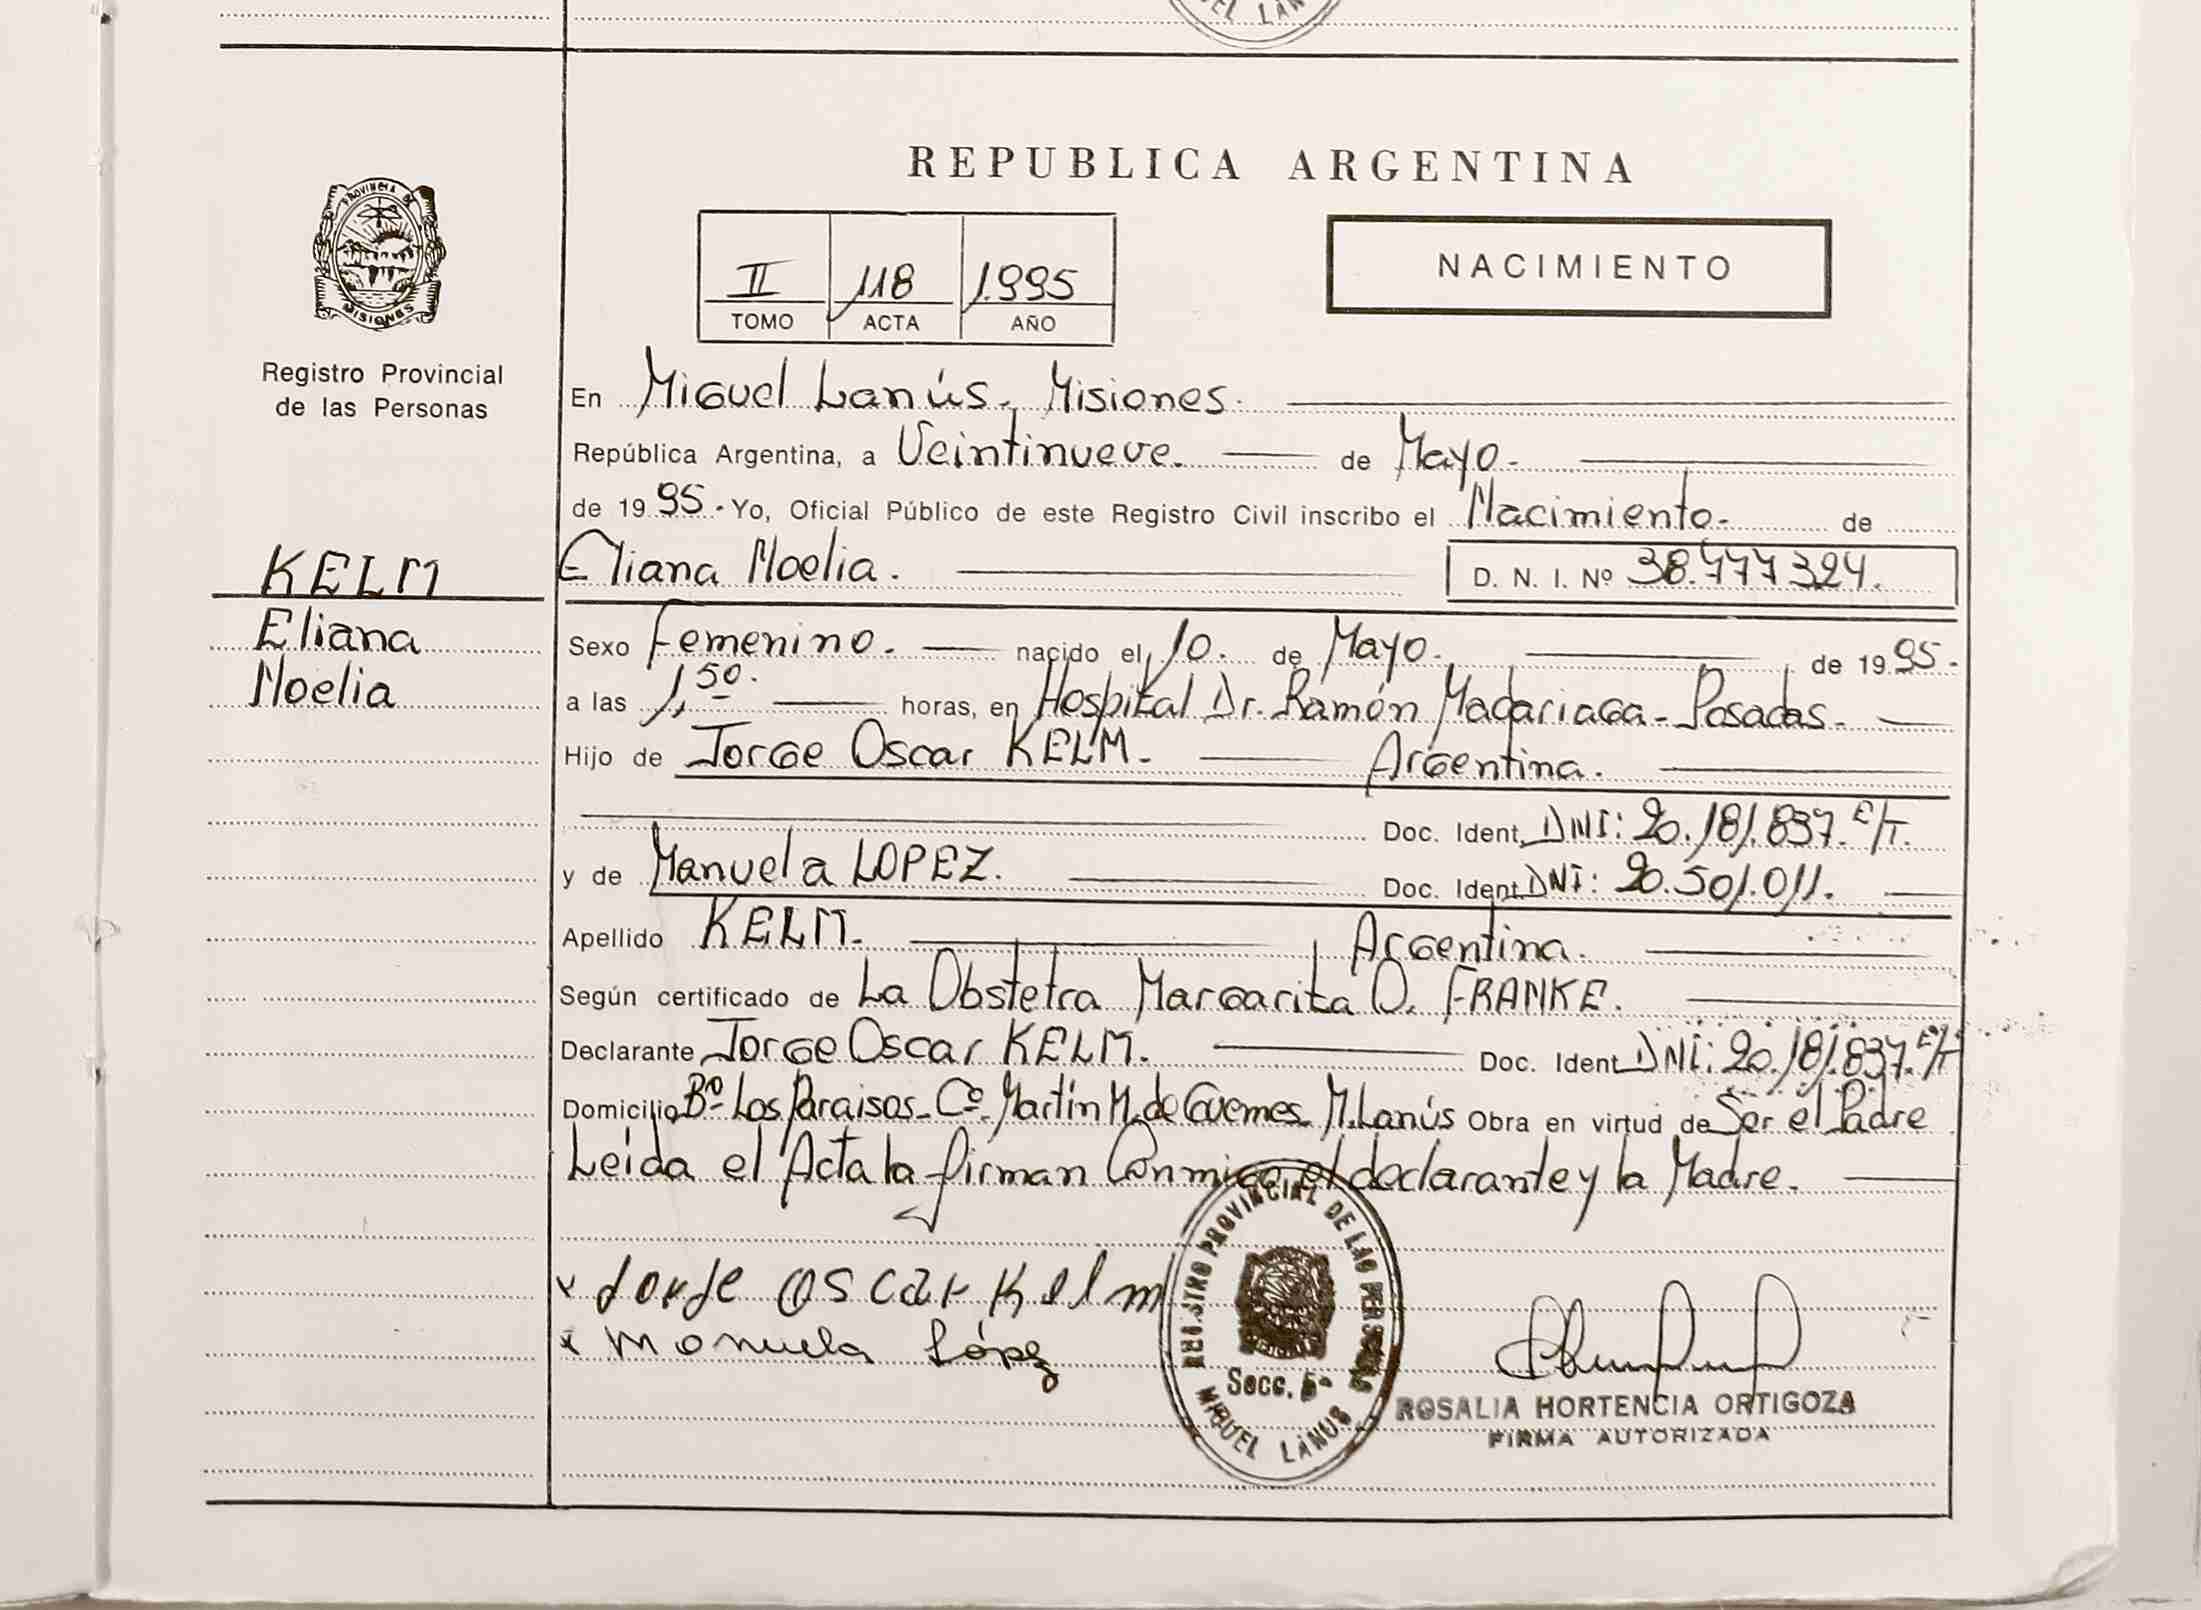 UEL LAN
REPUBLICA ARGENTINA
PROVINCIA DE
MISIONES
Registro Provincial
de las Personas
II 118 1.995
TOMO ACTA AÑO
NACIMIENTO
En Miguel Lanús, Misiones.
República Argentina, a Veintinueve. de Mayo.
de 1995. Yo, Oficial Público de este Registro Civil inscribo el Nacimiento. de
KELM
Eliana
Noelia
Eliana Noelia. D. N. I. Nº 38.777.324.
Sexo Femenino. nacido el 10. de Mayo. de 1995.
a las 1,50. horas, en Hospital Dr. Ramón Madariaga - Posadas.
Hijo de Jorge Oscar KELM. Argentina.
Doc. Ident. DNI: 20.181.837. E/T.
y de Manuela LOPEZ. Doc. Ident. DNI: 20.501.011.
Apellido KELM. Argentina.
Según certificado de La Obstetra Margarita O. FRANKE.
Declarante Jorge Oscar KELM. Doc. Ident. DNI: 20.181.837. E/T
Domicilio Bº Los Paraisos - Cº Martín M. de Guemes - M. Lanús Obra en virtud de Ser el Padre
Leida el Acta la firman Conmigo el declarante y la Madre.
x Jorje Oscar Kelm
x Manuela López
REGISTRO PROVINCIAL DE LAS PERSONAS
Secc. 5ª
MIGUEL LANUS
ROSALIA HORTENCIA ORTIGOZA
FIRMA AUTORIZADA